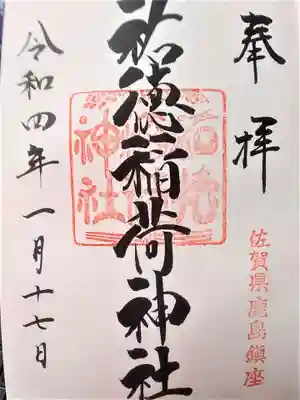 奉拝
佐賀県鹿島鎮座
祐徳稲荷神社
令和四年一月十七日